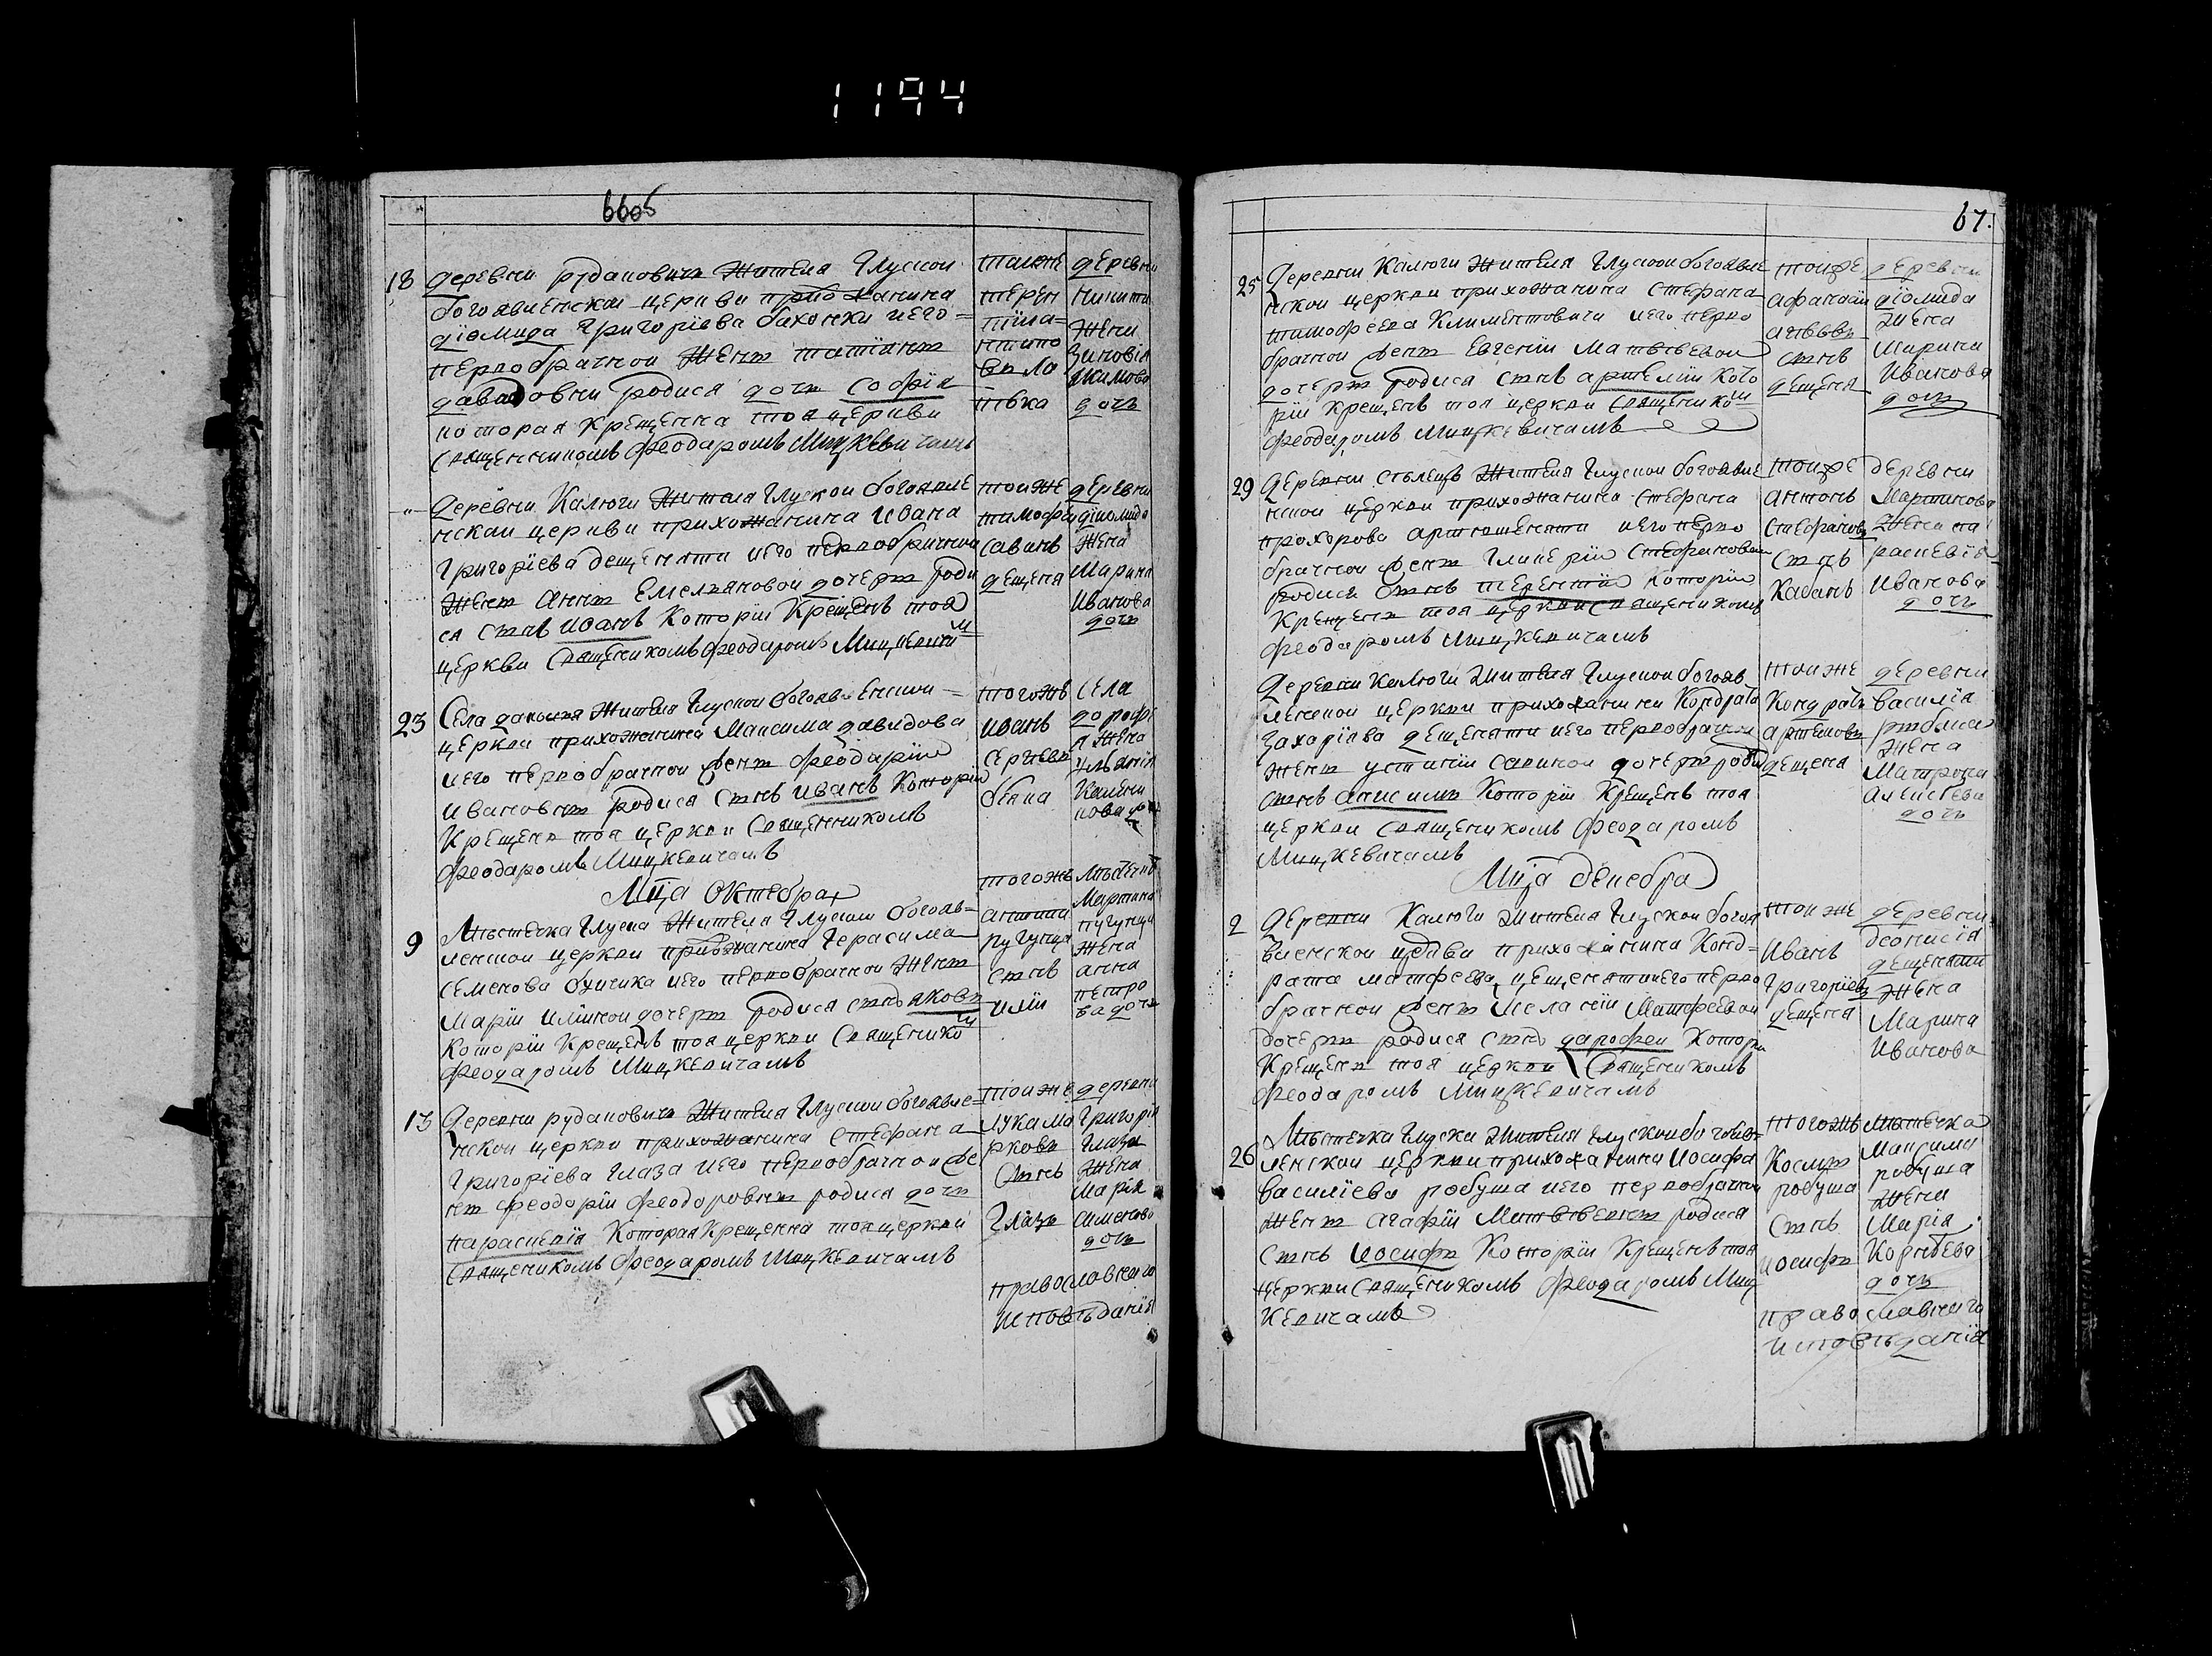 1194
66об
18 деревни рудановичъ жителя Глуской
богоявленской церкви прихожанина
діомида Григоріева бахонки иего
первобрачной жены татіаны
давыдовны родися дочь софія
которая крещенна тоя церкви
священникомъ феодаромъ Мицкевичамъ
тоиже
терен
вила
деревни
никиты
жена
Зиновія
Якимова
дочь
деревни Калюги жителя Глуской богоявле
нской церкви прихожанина Ивана
Григоріева дещеняти иего первобрачной
жены Анны Емельяновой дочеры роди
ся сынъ иванъ Которіи Крещенъ тоя
церкви священикомъ феодаромъ Мицкевичем
тоиже
тимофей
савинъ
дещеня
деревни
діомида
жена
Марина
Иванова
дочь
23 Села жителя Глуской богоявленской
церкви прихожанина Максима давидова
иего первобрачной жены феодарии
Ивановны родися сынъ иванъ Которіи
Крещенъ тоя церкви священникомъ
феодаромъ Мицкевичамъ
тогожъ
иванъ
Сергеевъ
села
дорофе
я жена
Ульянія
Мца Октебра
9 Мъстечка Глуска жителя Глуской богояв
ленской церкви прихожанина Герасима
Семенова иего первобрачной жены
Маріи илійной дочеры родися сынъ яковъ
Которіи Крещенъ тоя церкви священико м
феодаромъ Мицкевичамъ
тогожъ
пугунца
сынъ
мъстечка
Мартина
пугунци
жена
анна
петро
ва дочь
13 деревни рудановичъ жителя Глуской богоявле
нской церкви прихожанина Стефана
Григоріева Глаза иего первобрачной же
ны феодоріи феодоровны родися дочь
параскевія Которая Крещенна тоя церкви
священикомъ феодаромъ Мицкевичамъ
тоиже
лука ма
рковъ
сынъ
Глазъ
деревни
Григорія
Глаза
жена
Марія
Симонова
дочь
православнаго
исповъданія
67.
25 деревни Калюги жителя Глуской богоявле
нской церкви прихожанина Стефана
тимофеева Климентовича иего перво
брачной жены Евгеніи Матвъевой
дочеры родися сынъ артемій Кото
ріи Крещенъ тоя церкви священиком
феодаромъ Мицкевичамъ
тоиже
афанасіи
сынъ
дещеня
деревни
діомида
жена
Марина
Иванова
дочь
29 деревни жителя Глуской богоявле
нской церкви прихожанина стефана
прохорова артюшеняти иего перво
брачной жены Гликеріи Стефановой
родися сынъ терентій Которіи
Крещенъ тоя церкви священикомъ
феодаромъ Мицкевичамъ
тоиже
антонъ
стефановъ
сынъ
Кабанъ
деревни
Мартинова
жена па
раскевія
Иванова
дочь
деревни Калюги жителя Глуской богояв
ленской церкви прихожанина Кондрата
Захаріева дещеняти иего первобрачной
жены устиніи савиной дочеры роди
сынъ анисимъ Которіи Крещенъ тоя
церкви священикомъ феодаромъ
Мицкевичамъ
тоиже
Кондратъ
артемовъ
дещеня
деревни
василія
жена
Матрона
Алексеева
дочь
Мца декебра
2 деревни Калюги жителя Глуской богоя
вленской церкви прихожанина Конд
рата матфеева дещеняти иего перво
брачной жены Меланіи Матфеевой
дочеры родися сынъ дарофеи Которіи
Крещенъ тоя церкви священикомъ
феодаромъ Мицкевичамъ
тоиже
Иванъ
Григоріевъ
дещеня
деревни
деонисія
дещеняти
жена
Марина
Иванова
26 Мъстечка Глуска жителя Глуской богояв
ленской церкви прихожанина Иосифа
василіева робуша иего первобрачной
жены агафіи Матвъевны родися
сынъ иосифъ Которіи Крещенъ тоя
церкви священикомъ феодаромъ Миц
Кевичамъ
тогожъ
Космы
робуша
сынъ
иосифъ
мъстечка
Максима
робуша
жена
Марія
Корнъева
дочь
православнаго
исповъданія